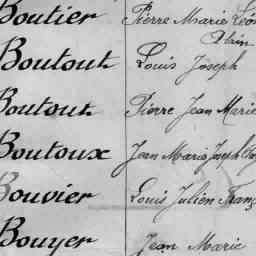 Boutier Pierre Marie Léon
Alain
Boutout Louis Joseph
Boutout Pierre Jean Marie
Boutoux Jean Marie Joseph
Bouvier Louis Julien Franç
Bouyer Jean Marie